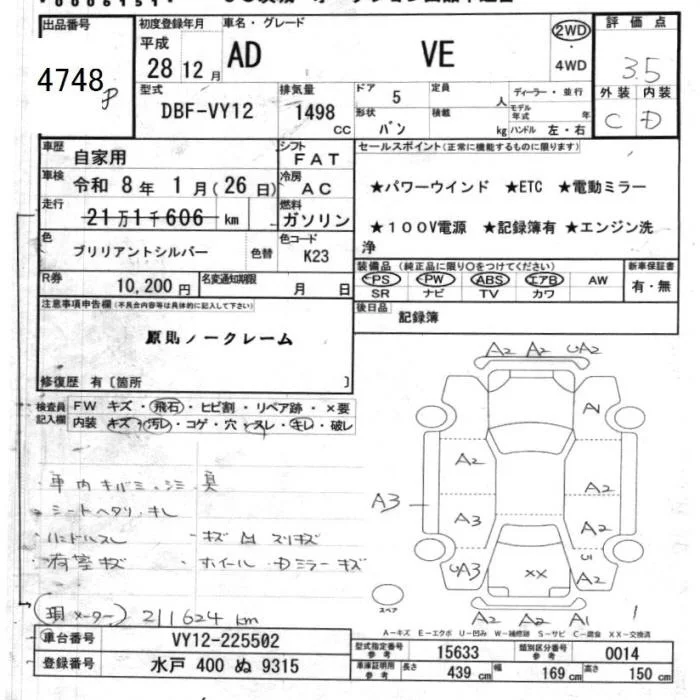 出品番号 初度登録年月 車名・グレード 評価点
4748 平成 28 12月 AD VE 2WD・4WD 3.5
型式 排気量 ドア 5 定員 人 ディーラー・並行 外装 内装
DBF-VY12 1498 cc 形状 バン 積載 kg モデル年式 年 ハンドル 左・右 C D
車歴 自家用 シフト FAT セールスポイント(正常に機能するものに限ります)
車検 令和 8年 1月(26日) 冷房 AC ★パワーウインド ★ETC ★電動ミラー
走行 21万1千606 km 燃料 ガソリン ★100V電源 ★記録簿有 ★エンジン洗浄
色 ブリリアントシルバー 色替 色コード K23 装備品(純正品に限り○をつけてください) 新車保証書
R券 10,200円 名変通知期限 月 日 PS PW ABS エアB AW 有・無
SR ナビ TV カワ
注意事項申告欄(不具合内容等は具体的に記入して下さい) 後日品 記録簿
原則ノークレーム
修復歴 有〔箇所 〕
検査員記入欄 FW キズ・飛石・ヒビ割・リペア跡・×要
内装 キズ・汚レ・コゲ・穴・スレ・キレ・破レ
A2 A2 UA2
A1
A2 A2
A3 A3 A2
UA3 XX U1 A2
A2 A2 A1
スペア
シートヘタリ・キレ
ハンドルスレ
荷室キズ ホイール・Dミラーキズ
(現メーター) 211624km
A-キズ E-エクボ U-凹み W-補修跡 S-サビ C-腐食 XX-交換済
車台番号 VY12-225502 型式指定番号 参考 15633 類別区分番号 参考 0014
登録番号 水戸 400 ぬ 9315 車庫証明用 参考 長さ 439 cm 幅 169 cm 高さ 150 cm